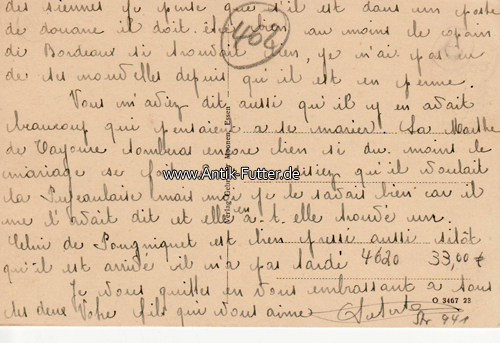 des siennes je pense que s'il est dans un poste
de douane il doit être bien au moins le copain
408
de Bordeaux si trouvait bien, je n'ai pas eu
de ses nouvelles depuis qu'il est en ferme.
Vous m'aviez dit aussi qu'il y en avait
beaucoup qui pensaient a se marier. La Marthe
de tombera encore bien si du moins le
mariage se fait. qu'il voulait
la mais moi je le savais bien car il
me l'avait dit et elle a.t.elle trouvé un
Celui de est bien pressé aussi sitôt
qu'il est arrivé il n'a pas tardé 4620 33,00 €
Je vous quitte en vous embrassant a tous
les deux Votre fils qui vous aime
O 3467 23
941
Verlag Gebrüder Moonen, Essen
www.Antik-Futter.de